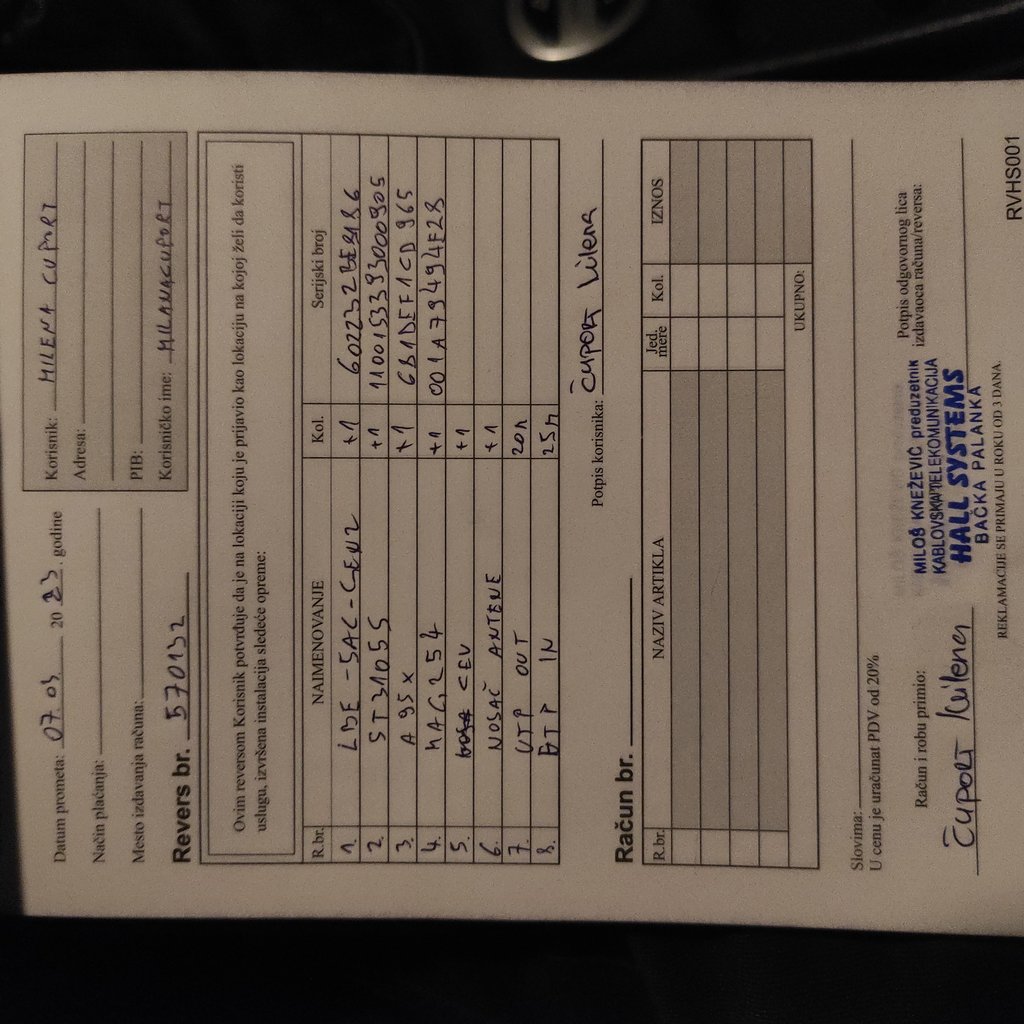 Datum prometa: 07.03. 2023. godine
Način plaćanja:
Mesto izdavanja računa:
Revers br. 570132
Korisnik: MILENA CUPORT
Adresa:
PIB:
Korisničko ime: MILANACUPORT
Ovim reversom Korisnik potvrđuje da je na lokaciji koju je prijavio kao lokaciju na kojoj želi da koristi
uslugu, izvršena instalacija sledeće opreme:
R.br. NAIMENOVANJE Kol. Serijski broj
1. LBE-5AC-GEN2 +1
2. ST31055 +1 1100153393000905
3. A95X +1 6B1DEF1CD965
4. MAG254 +1 001A79494E28
5. CEV +1
6. NOSAČ ANTENE +1
7. UTP OUT 20m
8. UTP IN 25m
Potpis korisnika: Čuport Milena
Račun br.
R.br. NAZIV ARTIKLA Jed. mere Kol. IZNOS
UKUPNO:
Slovima:
U cenu je uračunat PDV od 20%
Račun i robu primio:
Čuport Milena
Potpis odgovornog lica
izdavaoca računa/reversa:
MILOŠ KNEŽEVIĆ preduzetnik
KABLOVSKA TELEKOMUNIKACIJA
HALL SYSTEMS
BAČKA PALANKA
REKLAMACIJE SE PRIMAJU U ROKU OD 3 DANA.
RVHS001